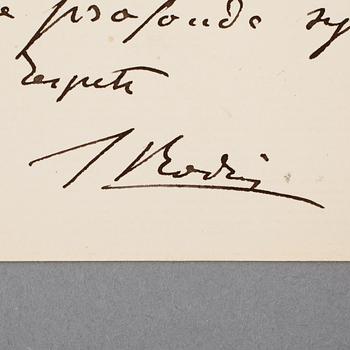 profonde sy
respects
A Rodin